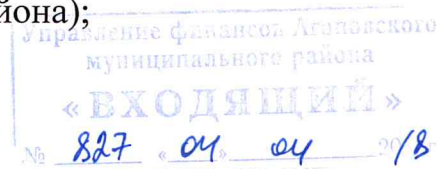 йона);
Управление финансов Агаповского
муниципального района
«ВХОДЯЩИЙ»
№ 827 «04» 04 2018